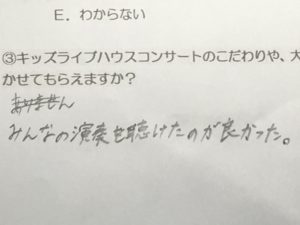 E．わからない
③キッズライブハウスコンサートのこだわりや、大
かせてもらえますか？
ありません
みんなの演奏を聴けたのが良かった。